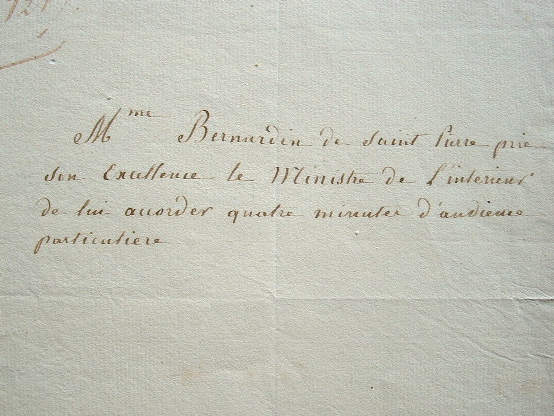 Mme Bernardin de Saint Pierre prie
son Excellence le Ministre de l'interieur
de lui accorder quatre minutes d'audience
particuliere